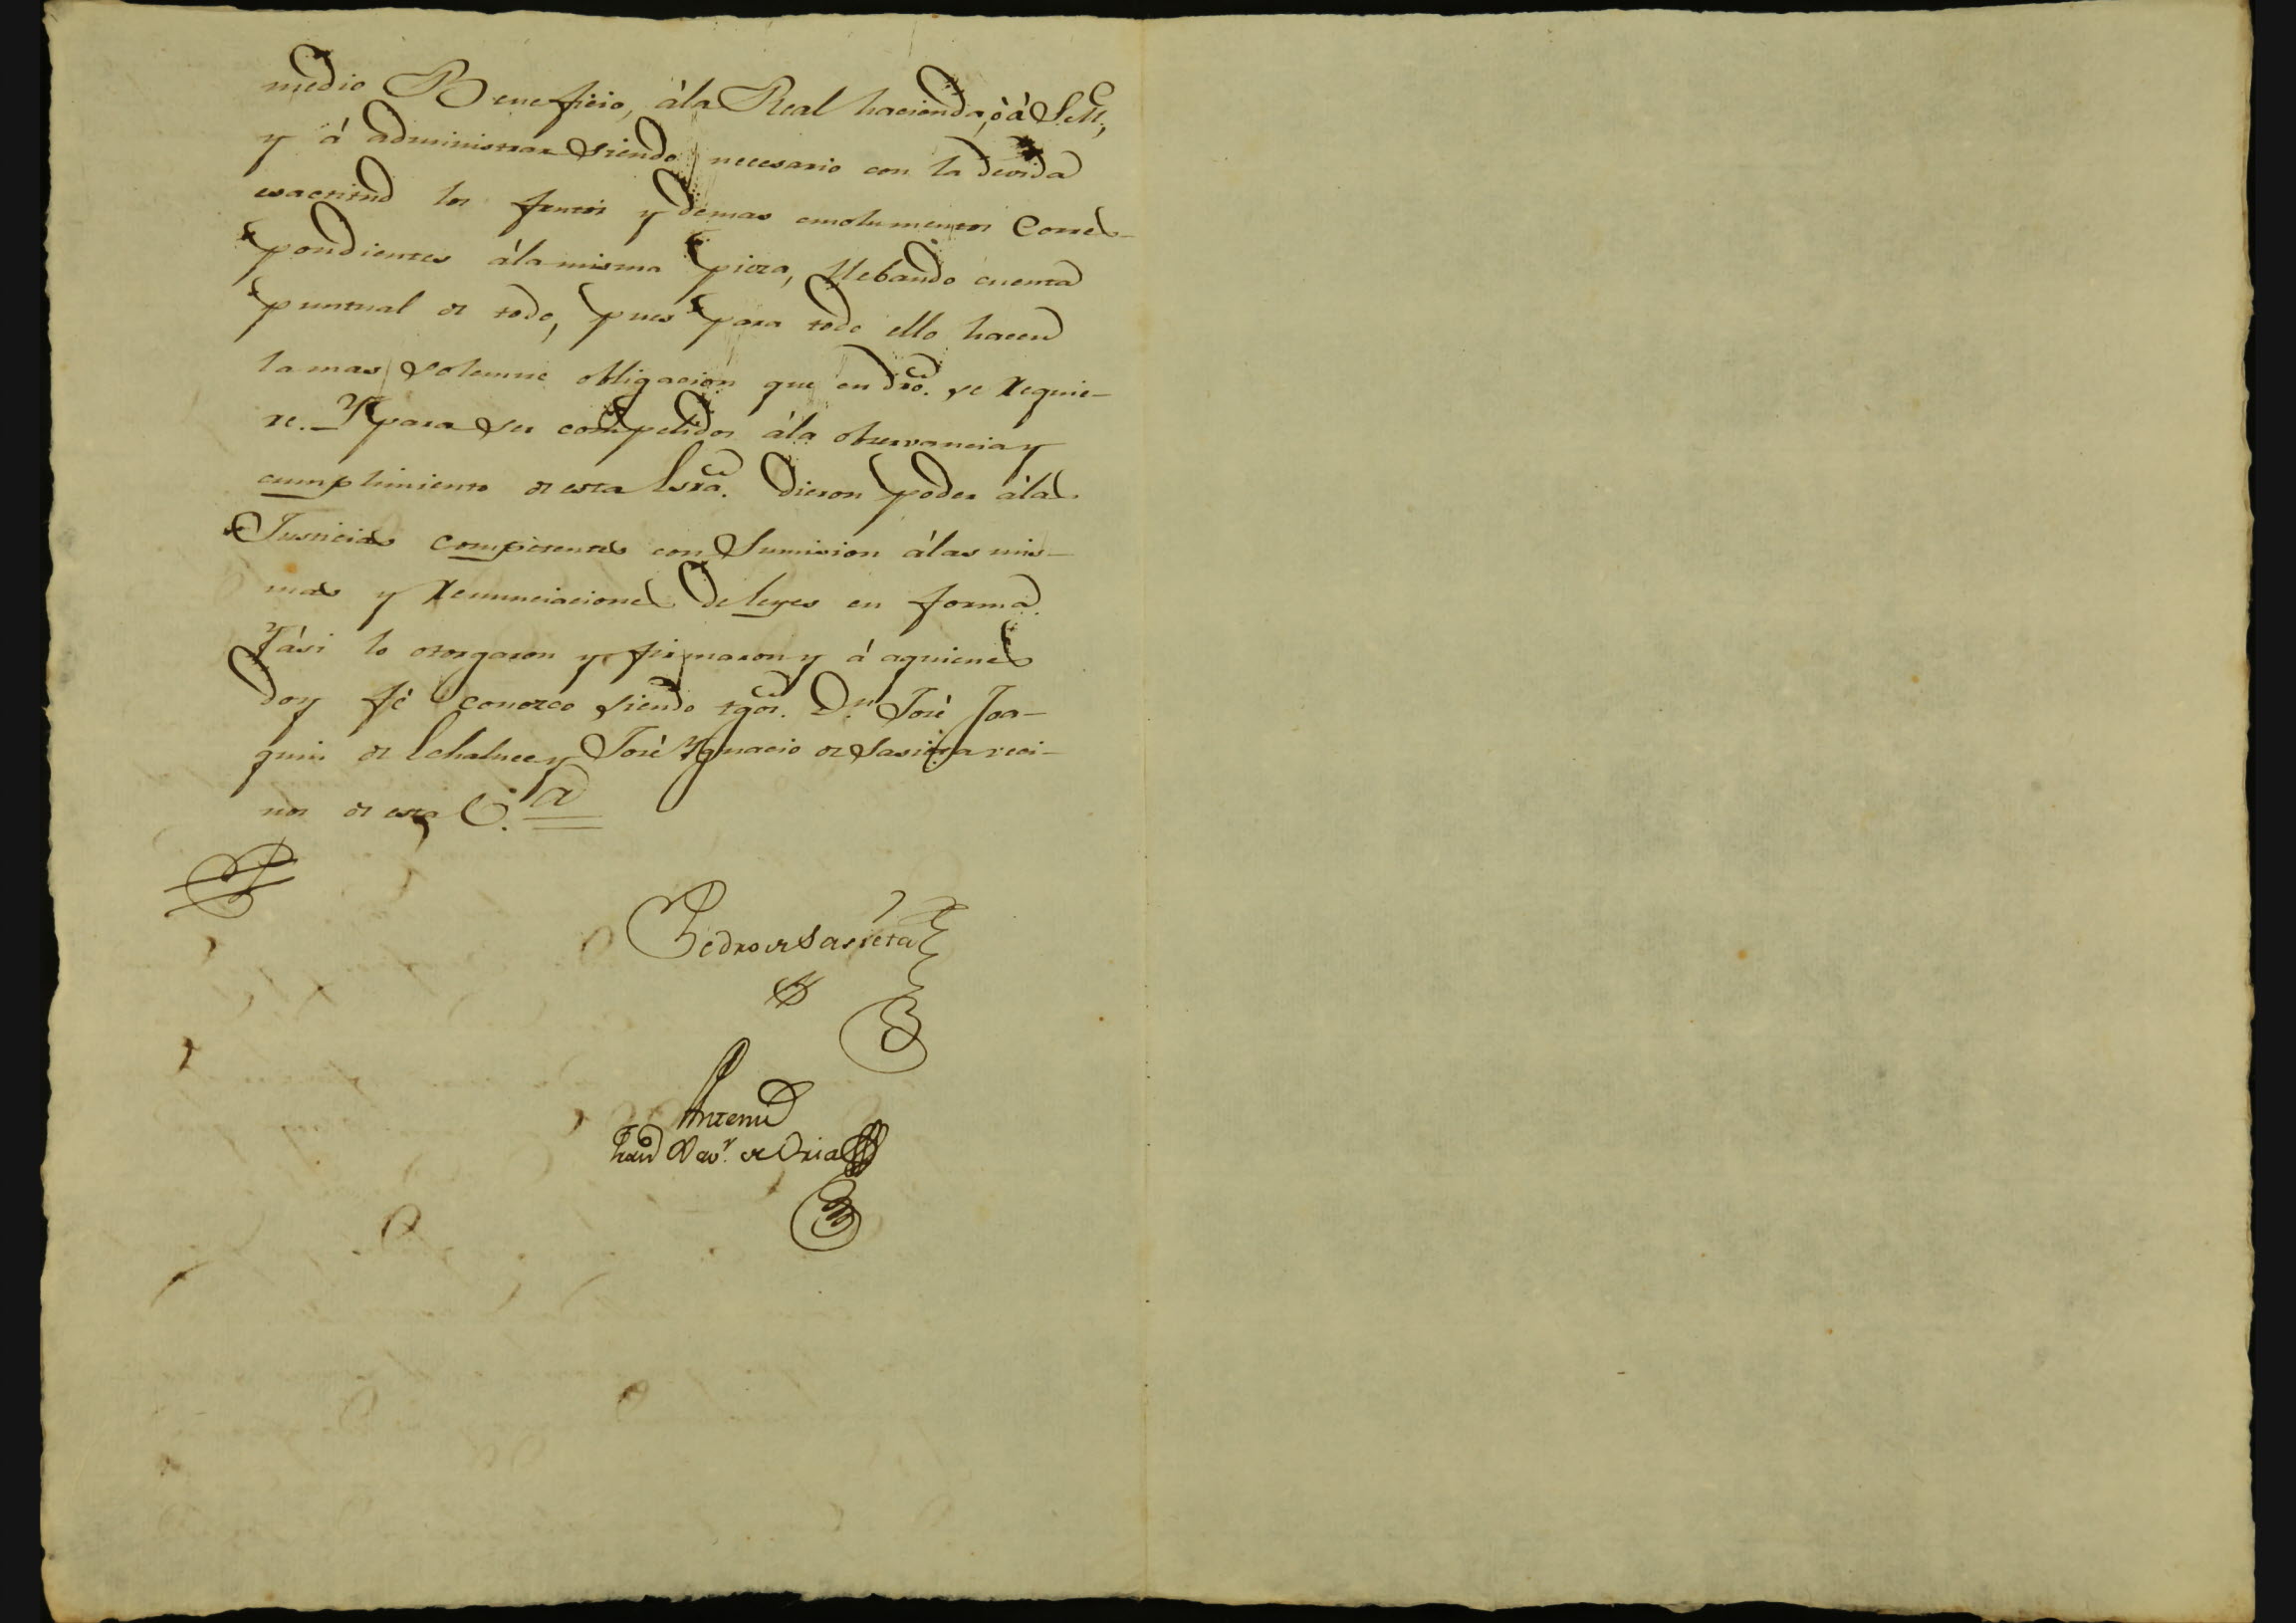 medio Beneficio, àla Real hacienda, ò à S.M.,
y à administrar siendo necesario con la devida
esactitud los frutos y demas emolumentos Corres-
pondientes àla misma pieza, llebando cuenta
puntual de todo, pues para todo ello hacen
la mas solemne obligacion que en dro. se requie-
re. Y para ser compelidos àla observancia y
cumplimiento de esta Esra. dieron poder àlas
Justicias competentes con Sumision àlas mis-
mas y renunciaciones de leyes en forma.
Y àsi lo otorgaron y firmaron y à aquienes
doy fè conozco siendo tgos. Dn. Josè Joa-
quin de Echaluce y Josè Ygnacio de Sasieta veci-
nos de esta V.a
Pedro de Sasieta
Antemi
Xavr. de Oria